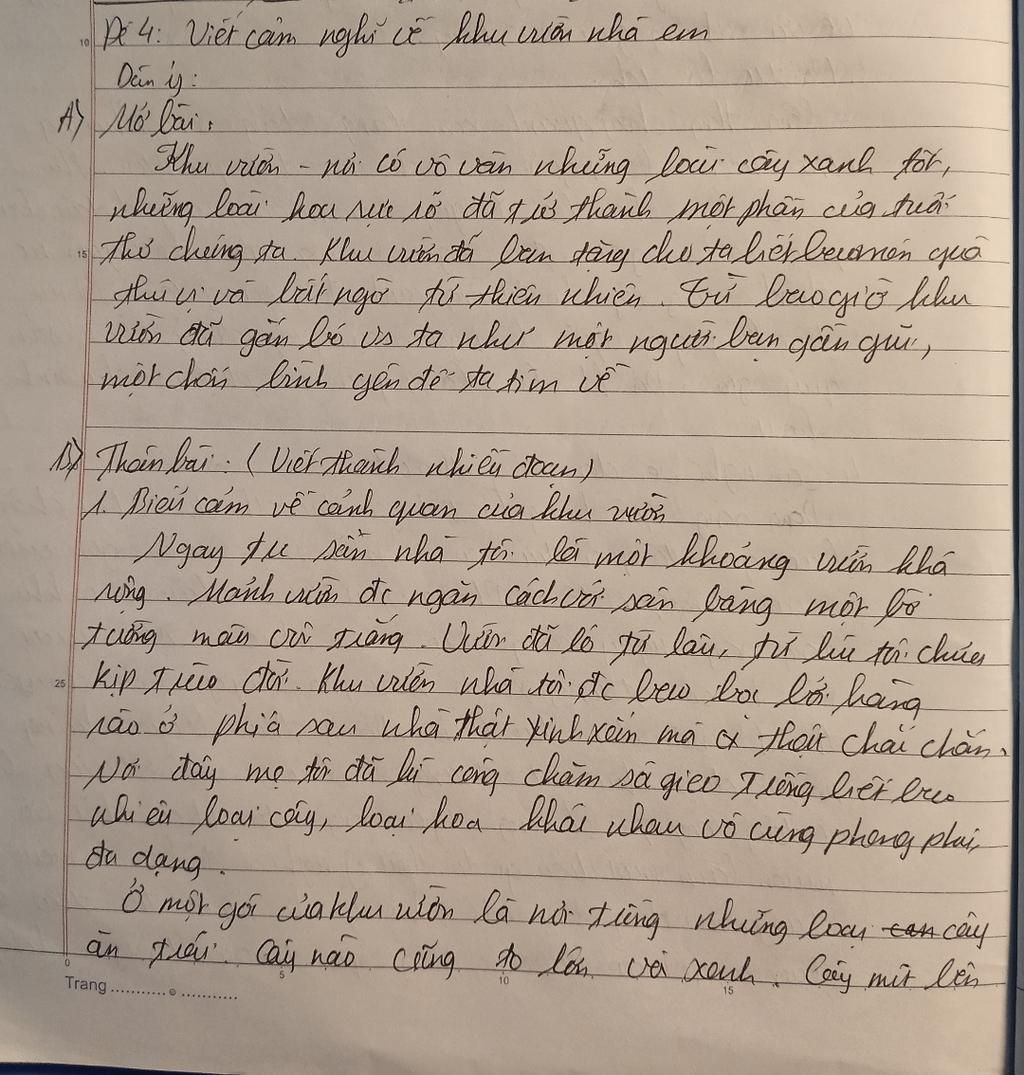 10 Đề 4: Viết cảm nghĩ về khu vườn nhà em
Dàn ý:
A) Mở bài:
Khu vườn - nơi có vô vàn những loài cây xanh tốt,
những loài hoa rực rỡ đã trở thành một phần của tuổi
15 thơ chúng ta. Khu vườn đã ban tặng cho ta biết bao món quà
thú vị và bất ngờ từ thiên nhiên. Từ bao giờ khu
vườn đã gắn bó vs ta như một người bạn gần gũi,
một chốn bình yên để ta tìm về
B) Thân bài: (Viết thành nhiều đoạn)
1. Biểu cảm về cảnh quan của khu vườn
Ngay từ sân nhà tôi là một khoảng vườn khá
rộng. Mảnh vườn đc ngăn cách với sân bằng một bờ
tường màu vôi trắng. Vườn đã có từ lâu, từ lúc tôi chưa
25 kịp trào đời. Khu vườn nhà tôi đc bao bọc bởi hàng
rào ở phía sau nhà thật xinh xắn mà thật chắc chắn.
Nơi đây mẹ tôi đã kì công chăm sóc gieo trồng biết bao
nhiêu loại cây, loại hoa khác nhau vô cùng phong phú,
đa dạng.
Ở một góc của khu vườn là nơi trồng những loại cây
ăn trái. Cây nào cũng to lớn và xanh. Cây mít lên
0 5 10 15
Trang ........... ● ...........